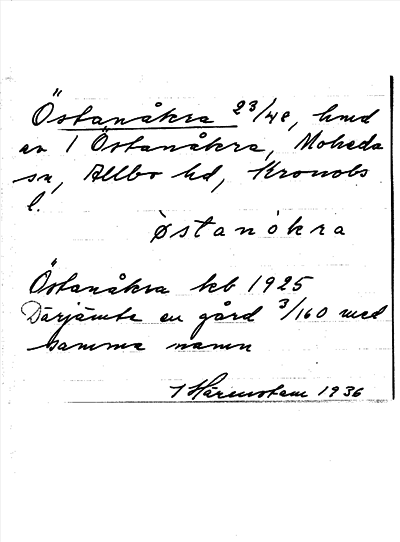 Östanåkra 23/48, hmd
av 1 Östanåkra, Moheda
sn, Allbo hd, Kronobs
l.
østanòkra
Östanåkra kb 1925
Därjämte en gård 3/160 med
samma namn
I Härenstam 1936